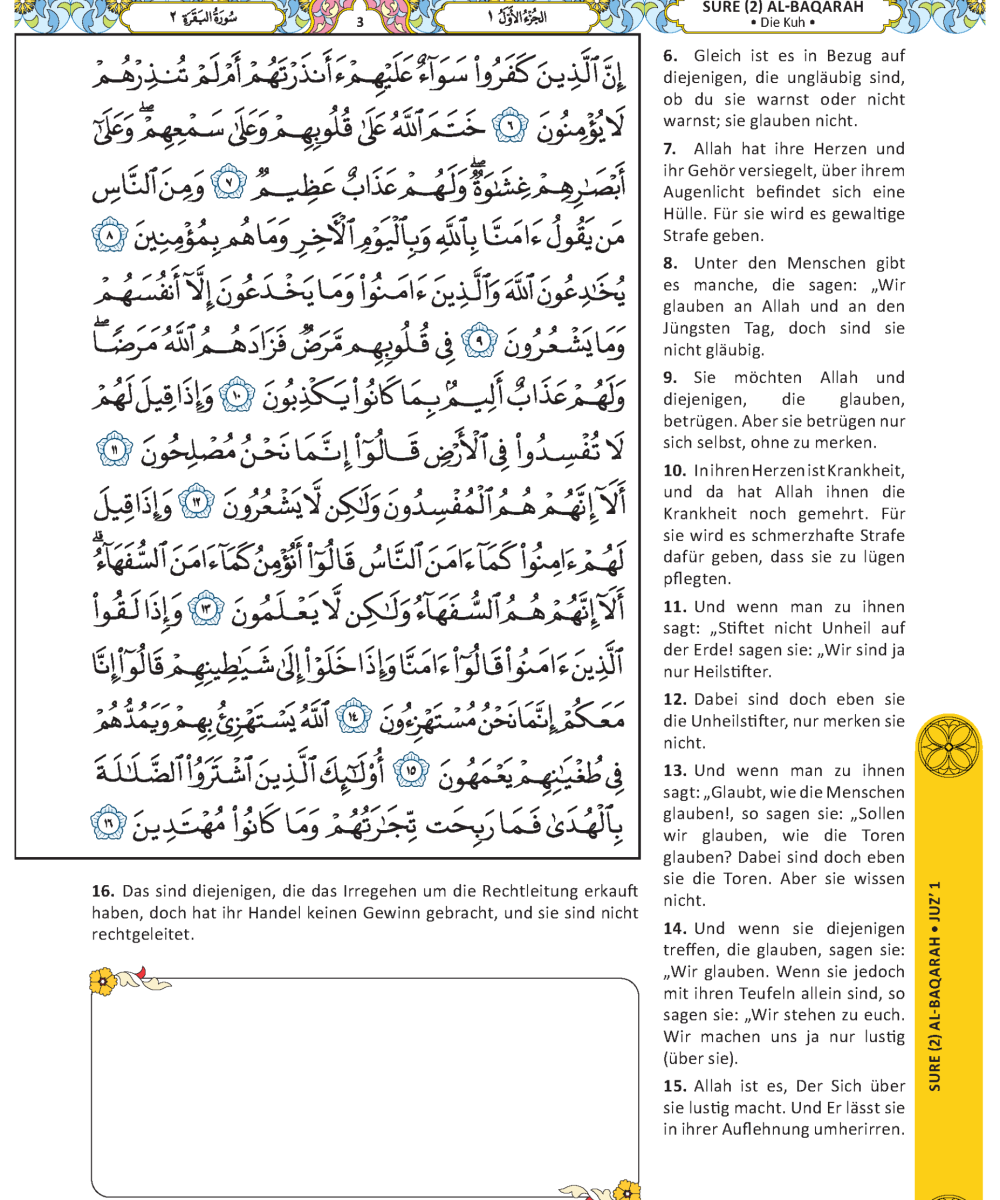 سُورَةُ البَقَرَةِ ٢
3
الجُزْءُ الأَوَّلُ ١
SURE (2) AL-BAQARAH
• Die Kuh •
إِنَّ ٱلَّذِينَ كَفَرُوا۟ سَوَآءٌ عَلَيْهِمْ ءَأَنذَرْتَهُمْ أَمْ لَمْ تُنذِرْهُمْ
لَا يُؤْمِنُونَ ٦ خَتَمَ ٱللَّهُ عَلَىٰ قُلُوبِهِمْ وَعَلَىٰ سَمْعِهِمْ ۖ وَعَلَىٰٓ
أَبْصَـٰرِهِمْ غِشَـٰوَةٌ ۖ وَلَهُمْ عَذَابٌ عَظِيمٌ ٧ وَمِنَ ٱلنَّاسِ
مَن يَقُولُ ءَامَنَّا بِٱللَّهِ وَبِٱلْيَوْمِ ٱلْـَٔاخِرِ وَمَا هُم بِمُؤْمِنِينَ ٨
يُخَـٰدِعُونَ ٱللَّهَ وَٱلَّذِينَ ءَامَنُوا۟ وَمَا يَخْدَعُونَ إِلَّآ أَنفُسَهُمْ
وَمَا يَشْعُرُونَ ٩ فِى قُلُوبِهِم مَّرَضٌ فَزَادَهُمُ ٱللَّهُ مَرَضًا ۖ
وَلَهُمْ عَذَابٌ أَلِيمٌۢ بِمَا كَانُوا۟ يَكْذِبُونَ ١٠ وَإِذَا قِيلَ لَهُمْ
لَا تُفْسِدُوا۟ فِى ٱلْأَرْضِ قَالُوٓا۟ إِنَّمَا نَحْنُ مُصْلِحُونَ ١١
أَلَآ إِنَّهُمْ هُمُ ٱلْمُفْسِدُونَ وَلَـٰكِن لَّا يَشْعُرُونَ ١٢ وَإِذَا قِيلَ
لَهُمْ ءَامِنُوا۟ كَمَآ ءَامَنَ ٱلنَّاسُ قَالُوٓا۟ أَنُؤْمِنُ كَمَآ ءَامَنَ ٱلسُّفَهَآءُ ۗ
أَلَآ إِنَّهُمْ هُمُ ٱلسُّفَهَآءُ وَلَـٰكِن لَّا يَعْلَمُونَ ١٣ وَإِذَا لَقُوا۟
ٱلَّذِينَ ءَامَنُوا۟ قَالُوٓا۟ ءَامَنَّا وَإِذَا خَلَوْا۟ إِلَىٰ شَيَـٰطِينِهِمْ قَالُوٓا۟ إِنَّا
مَعَكُمْ إِنَّمَا نَحْنُ مُسْتَهْزِءُونَ ١٤ ٱللَّهُ يَسْتَهْزِئُ بِهِمْ وَيَمُدُّهُمْ
فِى طُغْيَـٰنِهِمْ يَعْمَهُونَ ١٥ أُو۟لَـٰٓئِكَ ٱلَّذِينَ ٱشْتَرَوُا۟ ٱلضَّلَـٰلَةَ
بِٱلْهُدَىٰ فَمَا رَبِحَت تِّجَـٰرَتُهُمْ وَمَا كَانُوا۟ مُهْتَدِينَ ١٦
6. Gleich ist es in Bezug auf
diejenigen, die ungläubig sind,
ob du sie warnst oder nicht
warnst; sie glauben nicht.
7. Allah hat ihre Herzen und
ihr Gehör versiegelt, über ihrem
Augenlicht befindet sich eine
Hülle. Für sie wird es gewaltige
Strafe geben.
8. Unter den Menschen gibt
es manche, die sagen: „Wir
glauben an Allah und an den
Jüngsten Tag, doch sind sie
nicht gläubig.
9. Sie möchten Allah und
diejenigen, die glauben,
betrügen. Aber sie betrügen nur
sich selbst, ohne zu merken.
10. In ihren Herzen ist Krankheit,
und da hat Allah ihnen die
Krankheit noch gemehrt. Für
sie wird es schmerzhafte Strafe
dafür geben, dass sie zu lügen
pflegten.
11. Und wenn man zu ihnen
sagt: „Stiftet nicht Unheil auf
der Erde! sagen sie: „Wir sind ja
nur Heilstifter.
12. Dabei sind doch eben sie
die Unheilstifter, nur merken sie
nicht.
13. Und wenn man zu ihnen
sagt: „Glaubt, wie die Menschen
glauben!, so sagen sie: „Sollen
wir glauben, wie die Toren
glauben? Dabei sind doch eben
sie die Toren. Aber sie wissen
nicht.
14. Und wenn sie diejenigen
treffen, die glauben, sagen sie:
„Wir glauben. Wenn sie jedoch
mit ihren Teufeln allein sind, so
sagen sie: „Wir stehen zu euch.
Wir machen uns ja nur lustig
(über sie).
15. Allah ist es, Der Sich über
sie lustig macht. Und Er lässt sie
in ihrer Auflehnung umherirren.
16. Das sind diejenigen, die das Irregehen um die Rechtleitung erkauft
haben, doch hat ihr Handel keinen Gewinn gebracht, und sie sind nicht
rechtgeleitet.
SURE (2) AL-BAQARAH • JUZ’ 1